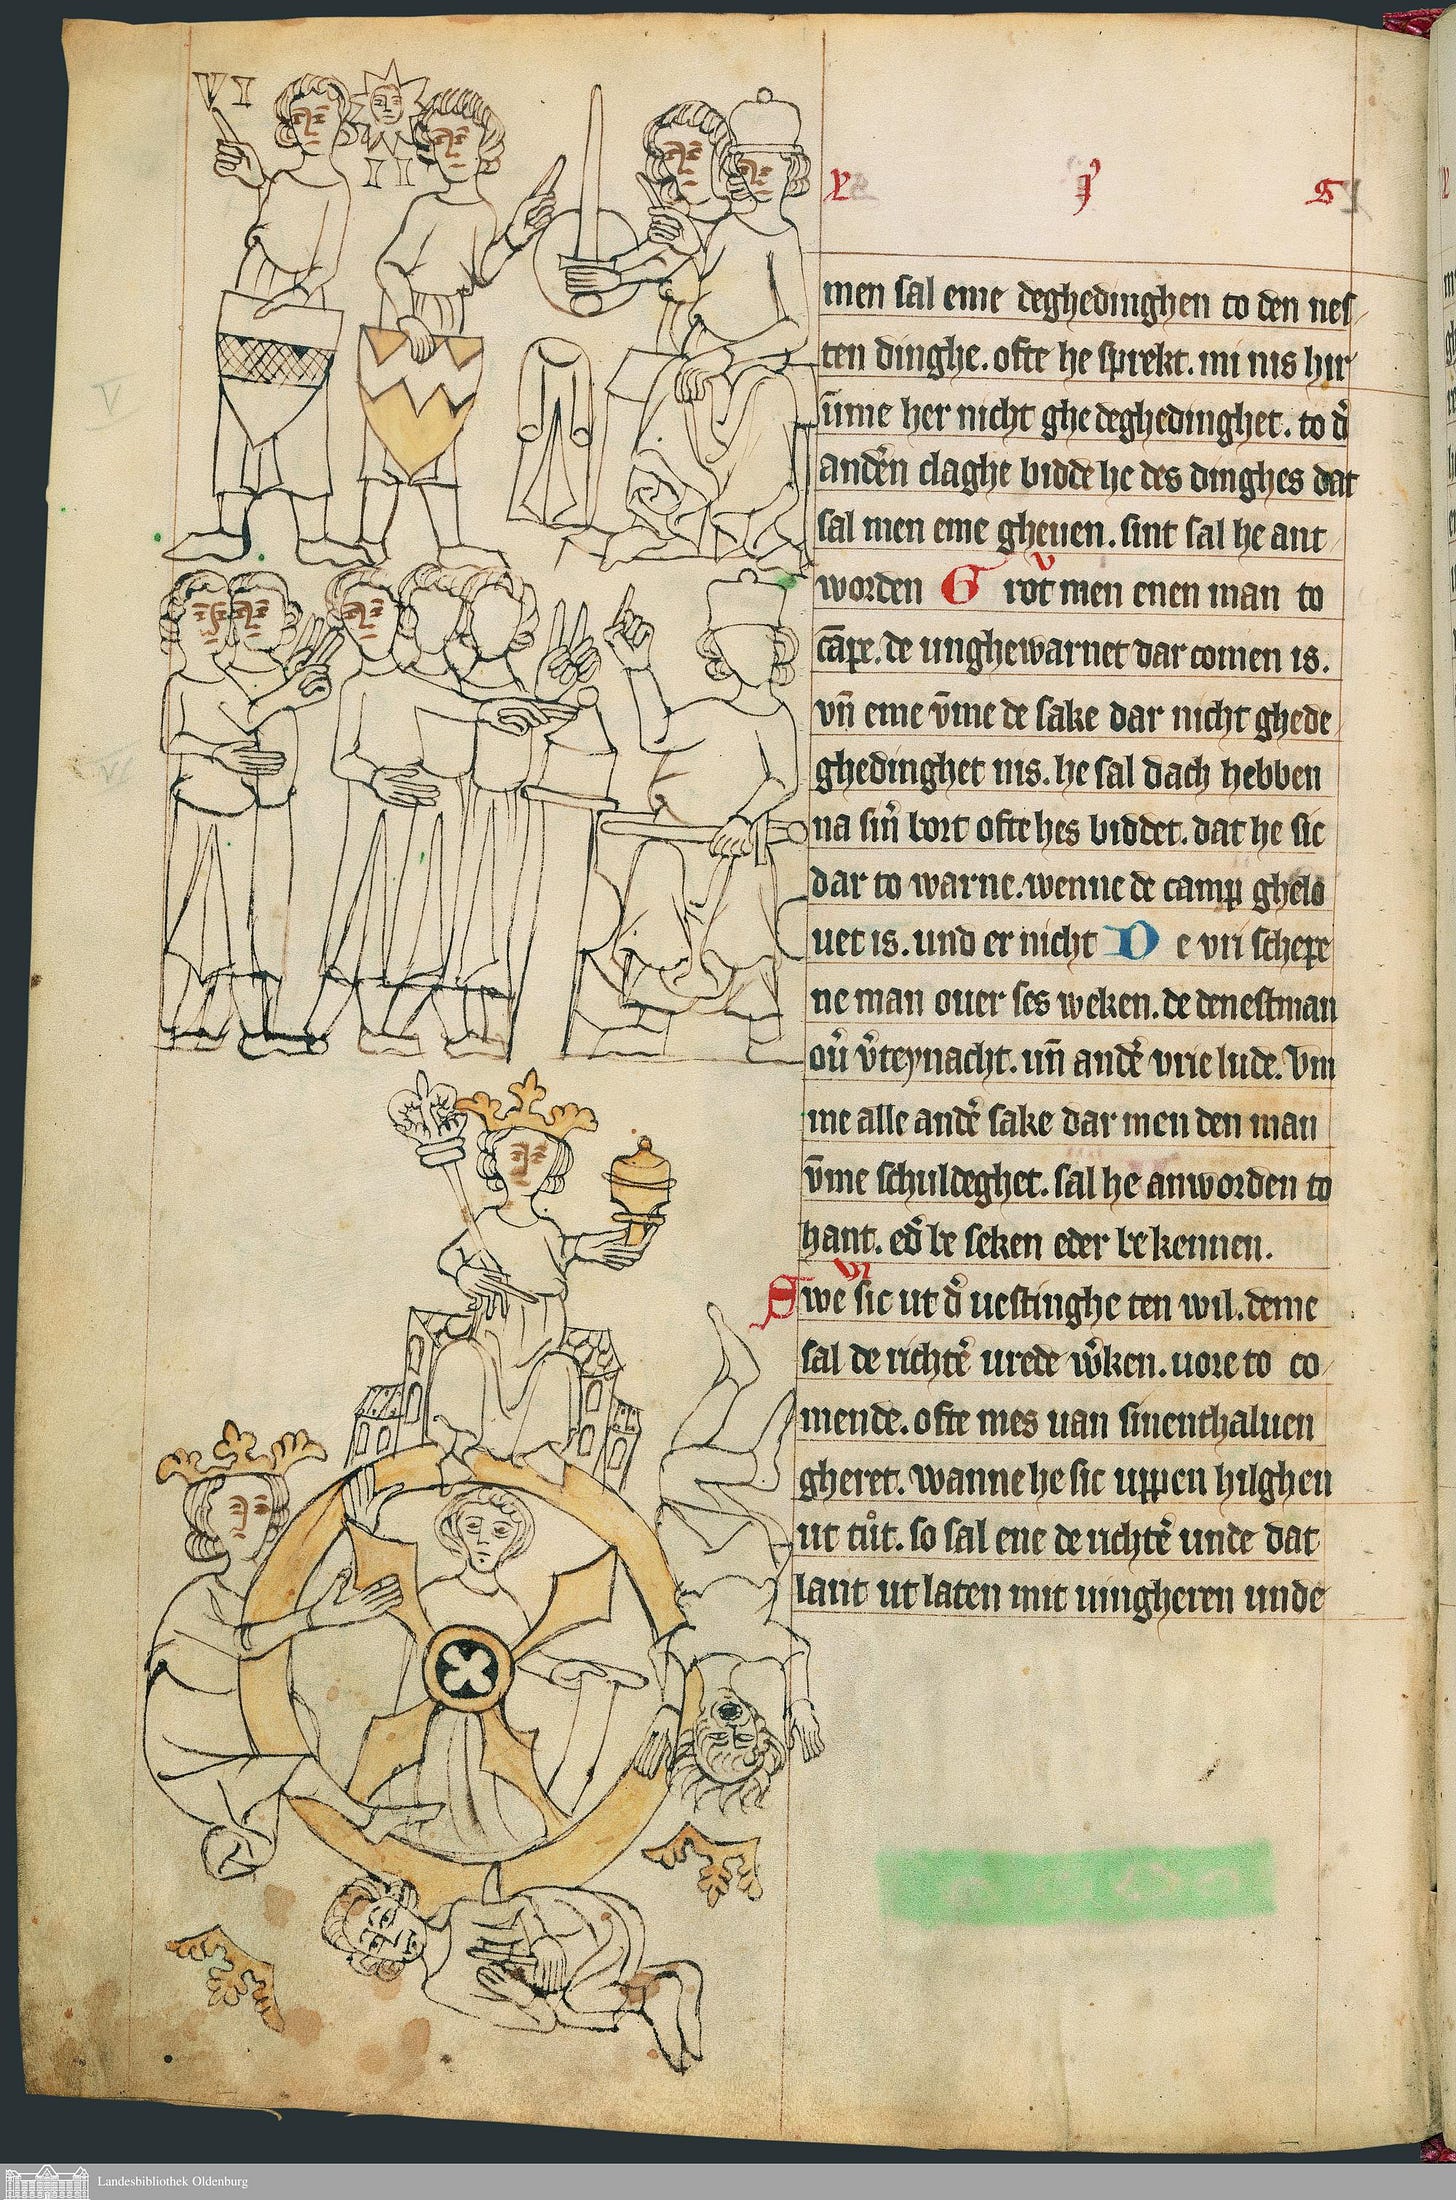 VI
II
L p S
men sal eme deghedinghen to den nes
ten dinghe. ofte he sprekt. mi nis hir
v̄me her nicht ghe deghedinghet. to d̾
anden̾ claghe bidde he des dinghes dat
sal men eme gheuen. sint sal he ant
worden Grot v men enen man to
cāpe. de unghewarnet dar comen is.
vn̄ eme v̄me de sake dar nicht ghede
ghedinghet nis. he sal dach hebben
na sin̾ bort ofte hes biddet. dat he sic
dar to warne. wenne de camp ghelo
uet is. und er nicht De vri schepe
ne man ouer ses weken. de denestman
ou̾ v̾teynacht. un̄ ande̾ vrie lude. Vm
me alle ande̾ sake dar men den man
v̄me schuldeghet. sal he anworden to
hant. ed̾ be seken eder be kennen.
VI
Swe sic ut d̾ uestinghe ten wil. deme
sal de richte̾ vrede w̾ken. uore to co
mende. ofte mes uan sinenthaluen
gheret. wanne he sic uppen hilghen
ut tůt. so sal ene de richte̾ unde dat
lant ut laten mit uingheren unde
Landesbibliothek Oldenburg